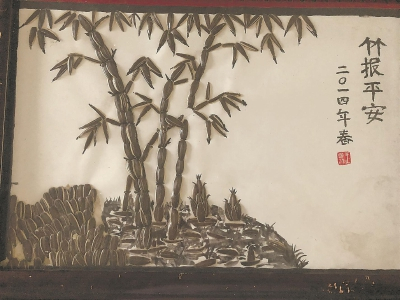 竹报平安
二〇一四年春